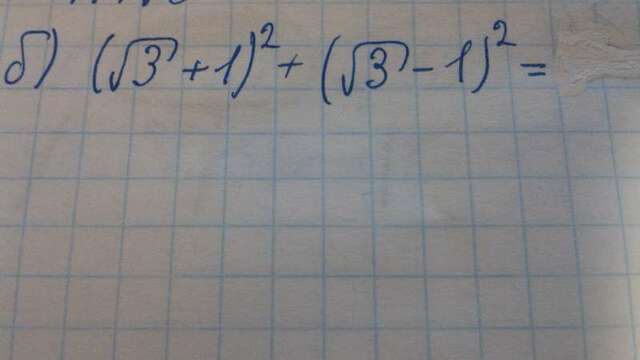 б) (√3 + 1)² + (√3 - 1)² =